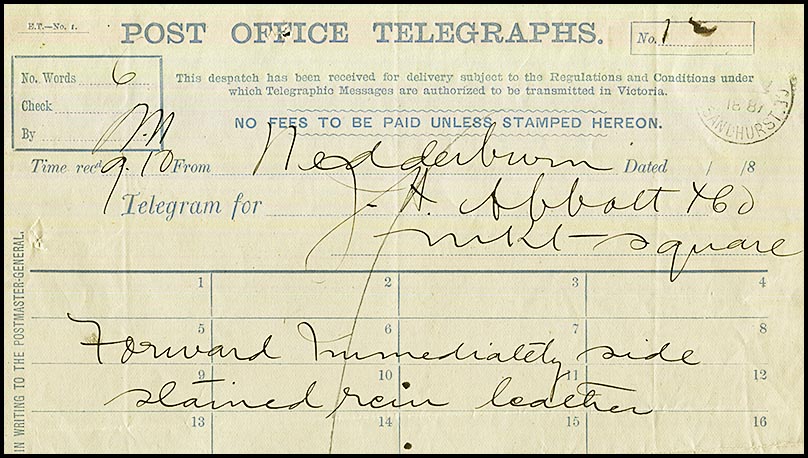 E.T.—No. 1.
POST OFFICE TELEGRAPHS.
No. 1
No. Words 6
Check
By
This despatch has been received for delivery subject to the Regulations and Conditions under
which Telegraphic Messages are authorized to be transmitted in Victoria.
NO FEES TO BE PAID UNLESS STAMPED HEREON.
18 87
SANDHURST
Time recd. 9.10 From Wedderburn Dated / /8
Telegram for J. A. Abbott & Co
mkt square
IN WRITING TO THE POSTMASTER-GENERAL.
1 2 3 4
5 6 7 8
Forward Immediately side
9 10 11 12
stained rein leather
13 14 15 16